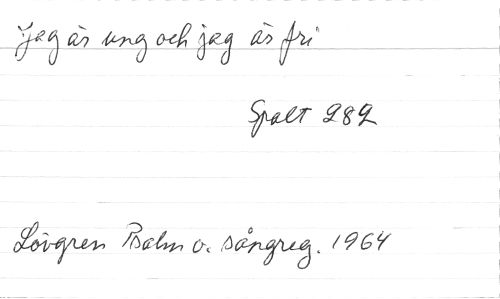 Jag är ung och jag är fri
Spalt 282
Lövgren Psalm o. sångreg. 1964